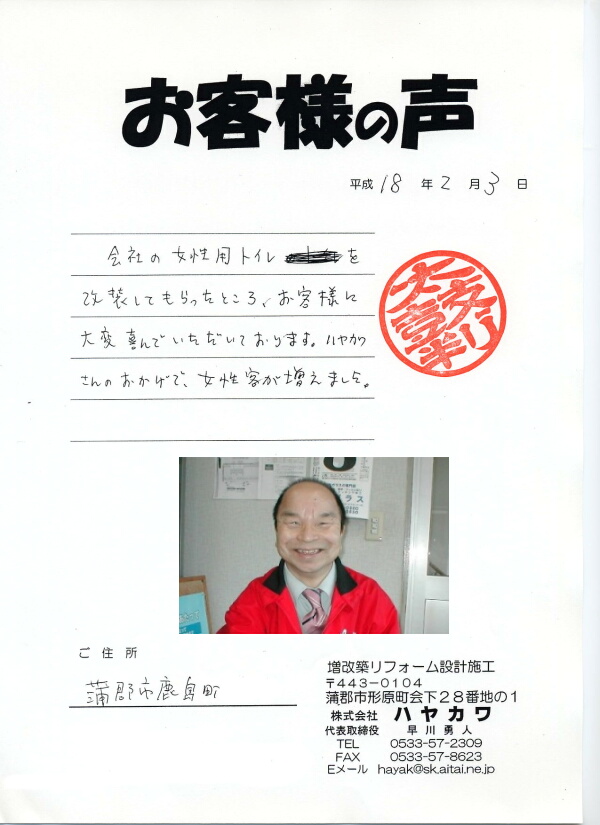 お客様の声
平成 18 年 2 月 3 日
会社の女性用トイレ を
改装してもらったところ、お客様に
大変喜んでいただいております。ハヤカワ
さんのおかげで、女性客が増えました。
ラス
ご住所
蒲郡市鹿島町
増改築リフォーム設計施工
〒443-0104
蒲郡市形原町会下28番地の1
株式会社 ハヤカワ
代表取締役 早川勇人
TEL 0533-57-2309
FAX 0533-57-8623
Eメール hayak@sk.aitai.ne.jp